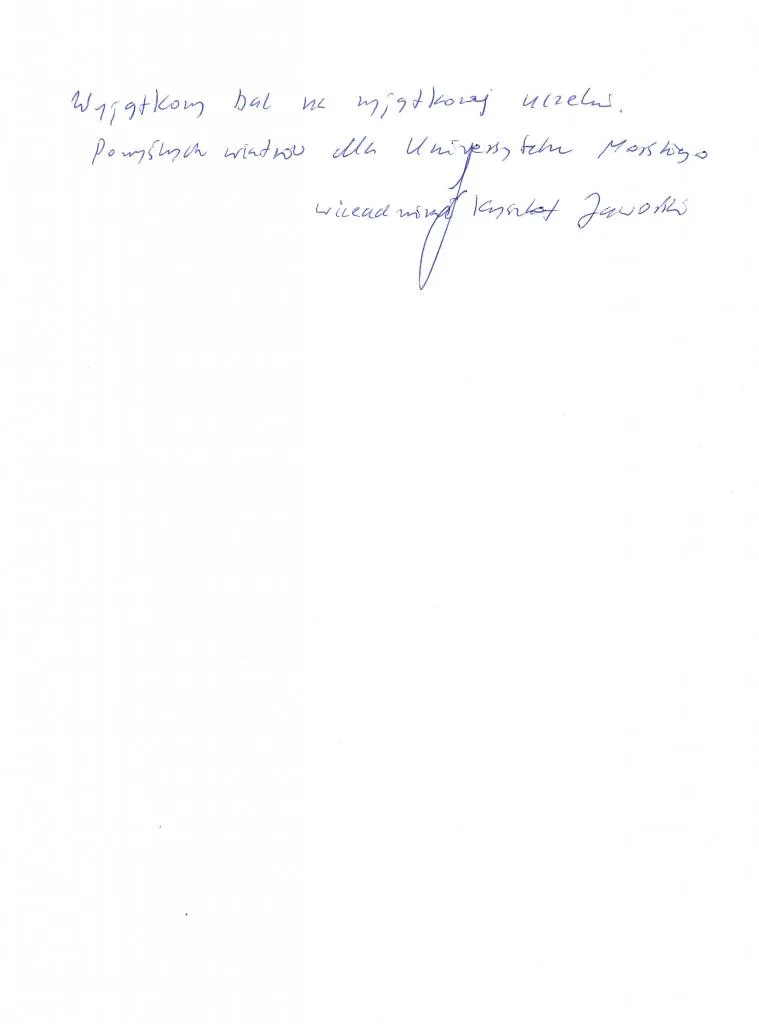 Wyjątkowy bal na wyjątkowej uczelni.
Pomyślnych wiatrów dla Uniwersytetu Morskiego
wiceadmirał Krzysztof Jaworski